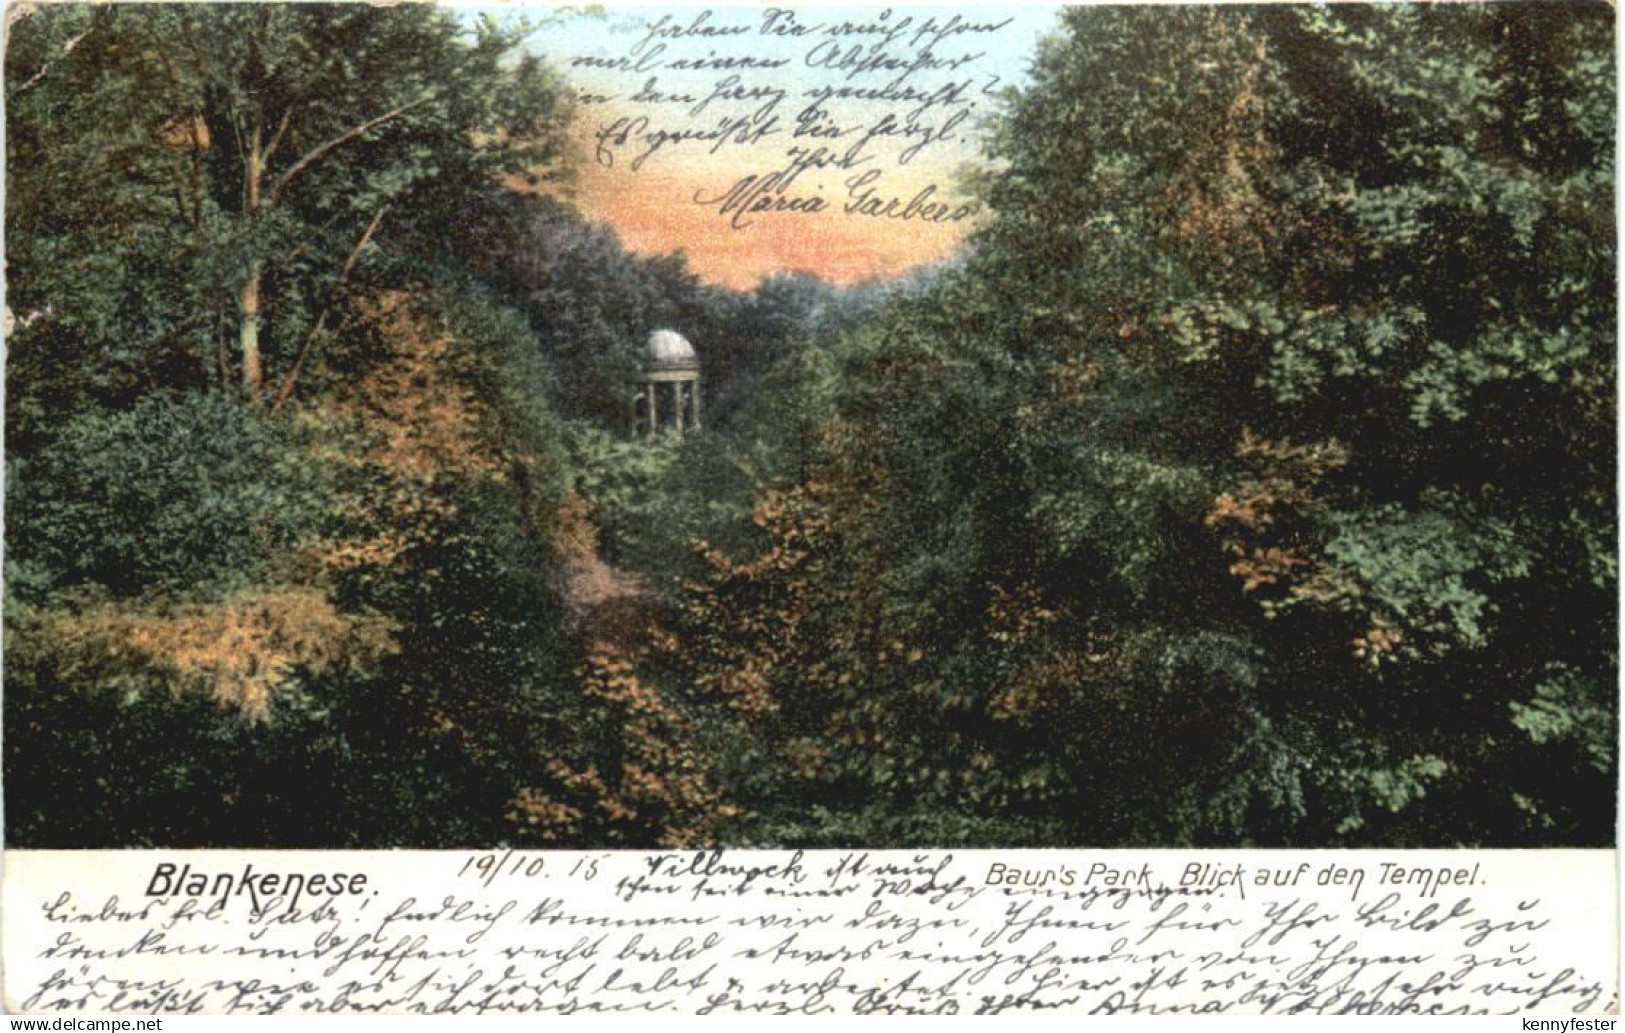 haben Sie auch schon
mal einen Abstecher
in den Harz gemacht?
Es grüßt Sie herzl.
Ihre
Maria Garbers
Blankenese.
19/10. 15
Willwock ist auch
schon seit einer Woche eingezogen.
Baur's Park, Blick auf den Tempel.
Liebes Frl. Satz! Endlich kommen wir dazu, Ihnen für Ihr Bild zu
danken und hoffen, recht bald etwas eingehender von Ihnen zu
hören, wie es sich dort lebt & arbeitet. Hier ist es jetzt sehr ruhig;
es läßt sich aber ertragen. Herzl. Gruß Ihrer Anna
kennyfester